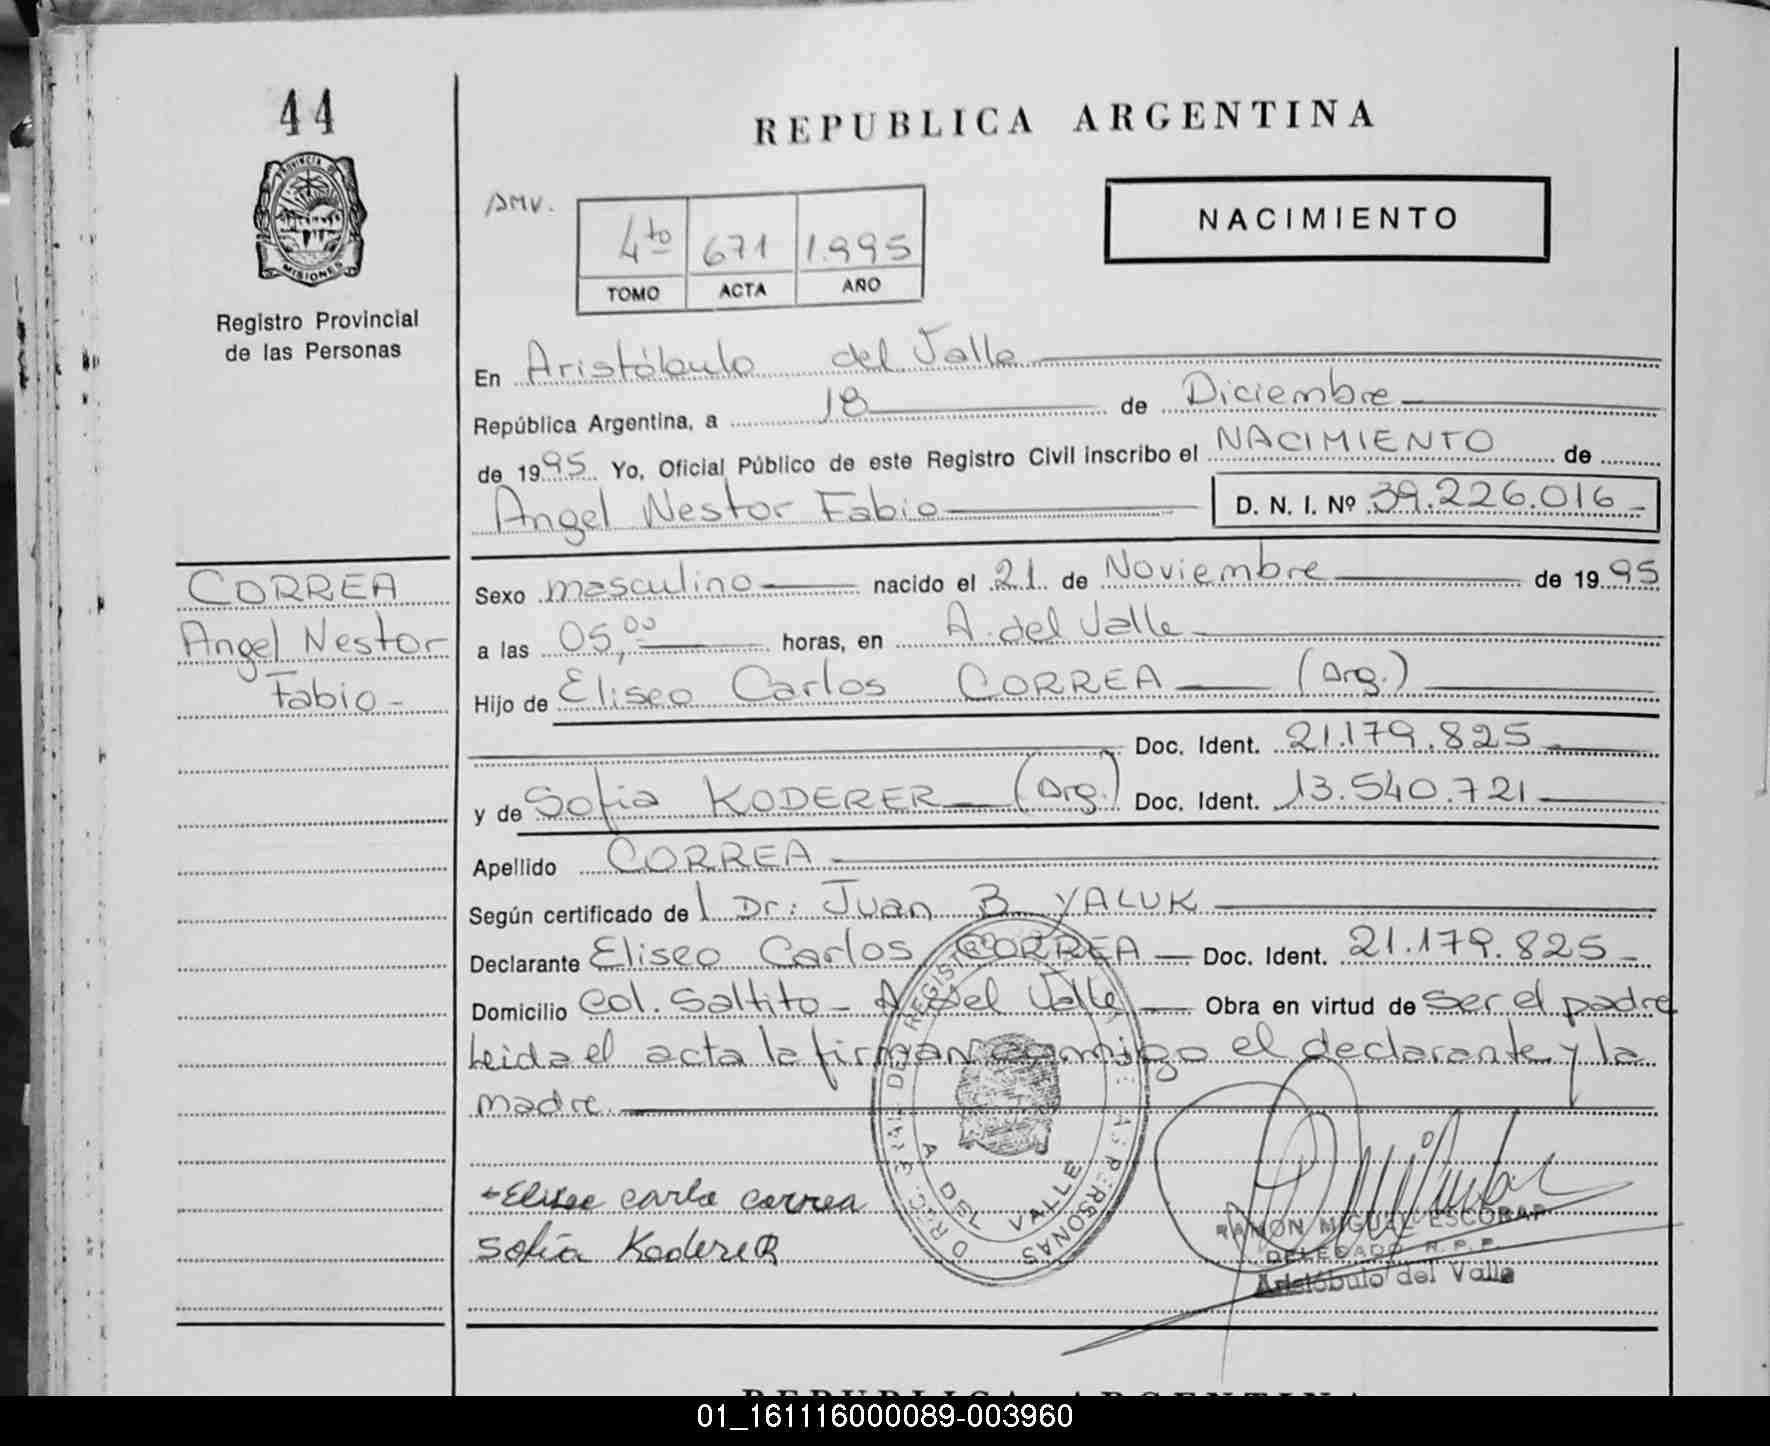 44
PROVINCIA DE
MISIONES
Registro Provincial
de las Personas
REPUBLICA ARGENTINA
AMV.
4to 671 1.995
TOMO ACTA AÑO
NACIMIENTO
En Aristóbulo del Valle
República Argentina, a 18 de Diciembre
de 1995 Yo, Oficial Público de este Registro Civil inscribo el NACIMIENTO de
Angel Nestor Fabio D. N. I. Nº 39.226.016
CORREA
Angel Nestor
Fabio
Sexo masculino nacido el 21 de Noviembre de 1995
a las 05,00 horas, en A. del Valle
Hijo de Eliseo Carlos CORREA (Arg.)
Doc. Ident. 21.179.825
y de Sofia KODERER (Arg.) Doc. Ident. 13.540.721
Apellido CORREA
Según certificado del Dr: Juan B. YALUK
Declarante Eliseo Carlos CORREA Doc. Ident. 21.179.825
Domicilio Col. Saltito - A. del Valle Obra en virtud de ser el padre
Leida el acta la firman conmigo el declarante y la
madre.
Eliseo carlo correa
Sofia KodereR
A DEL VALLE
PERSONAS
RAMON MIGUEL ESCOBAR
DELEGADO R.P.P.
Aristóbulo del Valle
REPUBLICA ARGENTINA
01_161116000089-003960